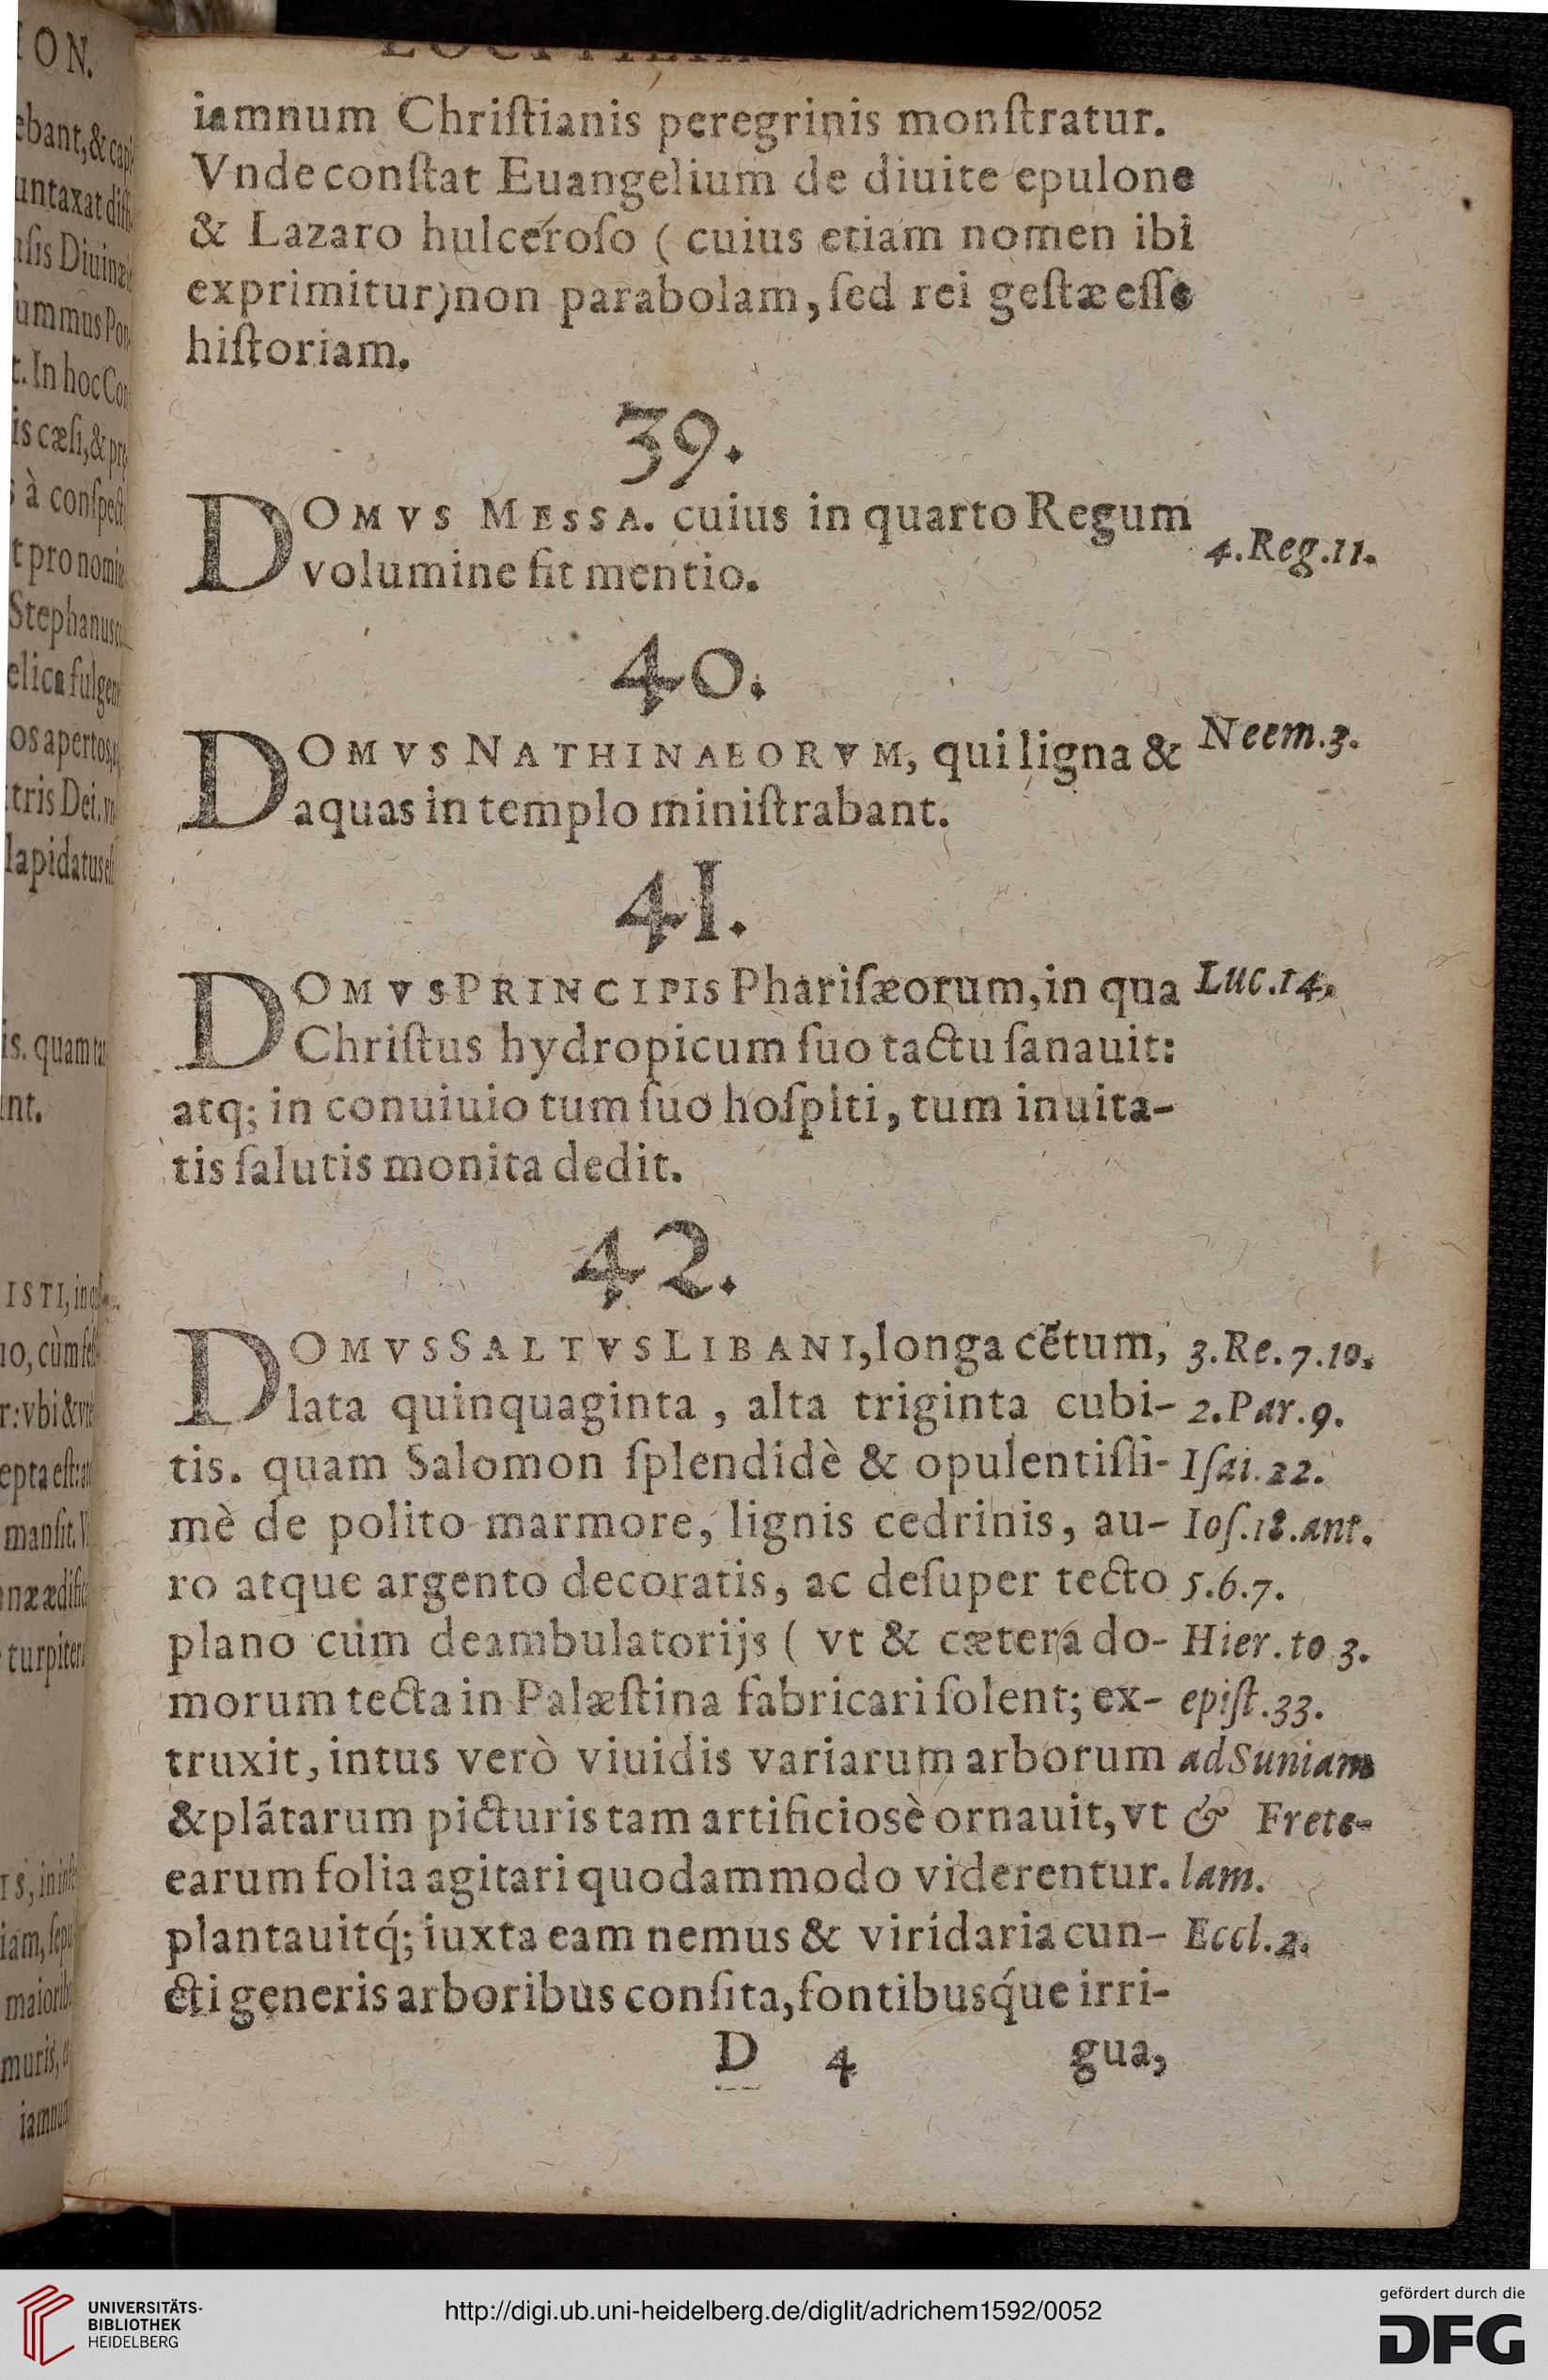 iamnum Chriſtianis peregrinis monſtratur.
Vnde conſtat Euangelium de diuite epulone
& Lazaro hulceroſo ( cuius etiam nomen ibi
exprimitur) non parabolam, ſed rei geſtæ eſſe
hiſtoriam.
39.
DOMVS MESSA. cuius in quarto Regum
4.Reg.11.
volumine fit mentio.
40.
DOMVS NATHINAEORVM, qui ligna &
Neem.3.
aquas in templo miniſtrabant.
41.
DOMVS PRINCIPIS Phariſæorum, in qua
Luc.14.
Chriſtus hydropicum ſuo tactu ſanauit:
atq; in conuiuio tum ſuo hoſpiti, tum inuita-
tis ſalutis monita dedit.
42.
DOMVS SALTVS LIBANI, longa cētum,
3.Re.7.10.
lata quinquaginta , alta triginta cubi-
2.Par.9.
tis. quam Salomon ſplendidè & opulentiſſi-
Iſai.22.
mè de polito marmore, lignis cedrinis, au-
Ioſ.18.ant.
ro atque argento decoratis, ac deſuper tecto
5.6.7.
plano cùm deambulatorijs ( vt & cætera do-
Hier.to 3.
morum tecta in Palæſtina fabricari ſolent; ex-
epiſt.33.
truxit, intus verò viuidis variarum arborum
ad Suniam
& plātarum picturis tam artificiosè ornauit, vt
& Frete-
earum folia agitari quodammodo viderentur.
lam.
plantauitq́; iuxta eam nemus & viridaria cun-
Eccl.2.
cti generis arboribus conſita, fontibusq́ue irri-
D 4
gua,
ION.
à conſpect
t pro nomin
elica fulgen
os apertos
tris Dei.
is. quam
nt.
ISTI, in
manſit.
UNIVERSITÄTS-
BIBLIOTHEK
HEIDELBERG
http://digi.ub.uni-heidelberg.de/diglit/adrichem1592/0052
gefördert durch die
DFG